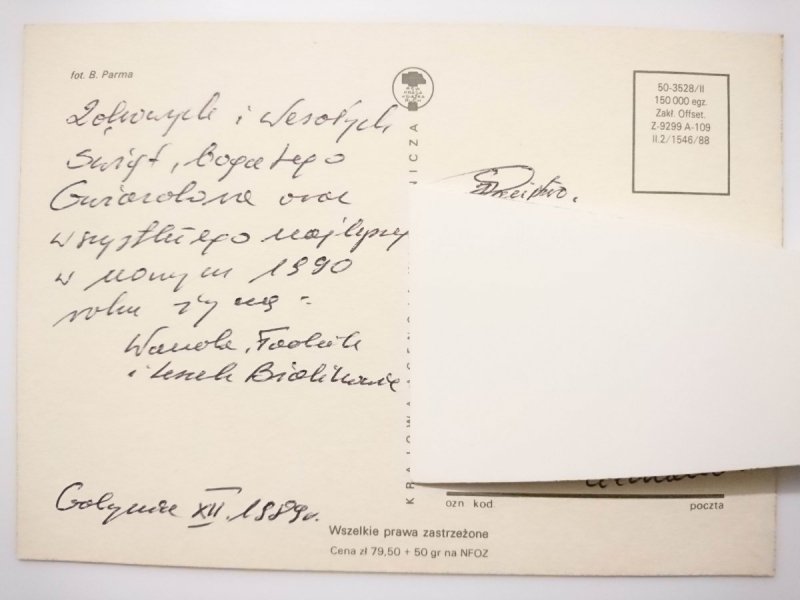 fot. B. Parma
Zdrowych i Wesołych
Świąt, bogatego
Gwiazdora oraz
wszystkiego najlepszego
w nowym 1990
roku życzą -
Wanda, Tadzik
i Leszek
Gdynia XII.1989r.
50-3528/II
150 000 egz.
Zakł. Offset.
Z-9299 A-109
II.2/1546/88
ozn kod
poczta
Wszelkie prawa zastrzeżone
Cena zł 79,50 + 50 gr na NFOZ